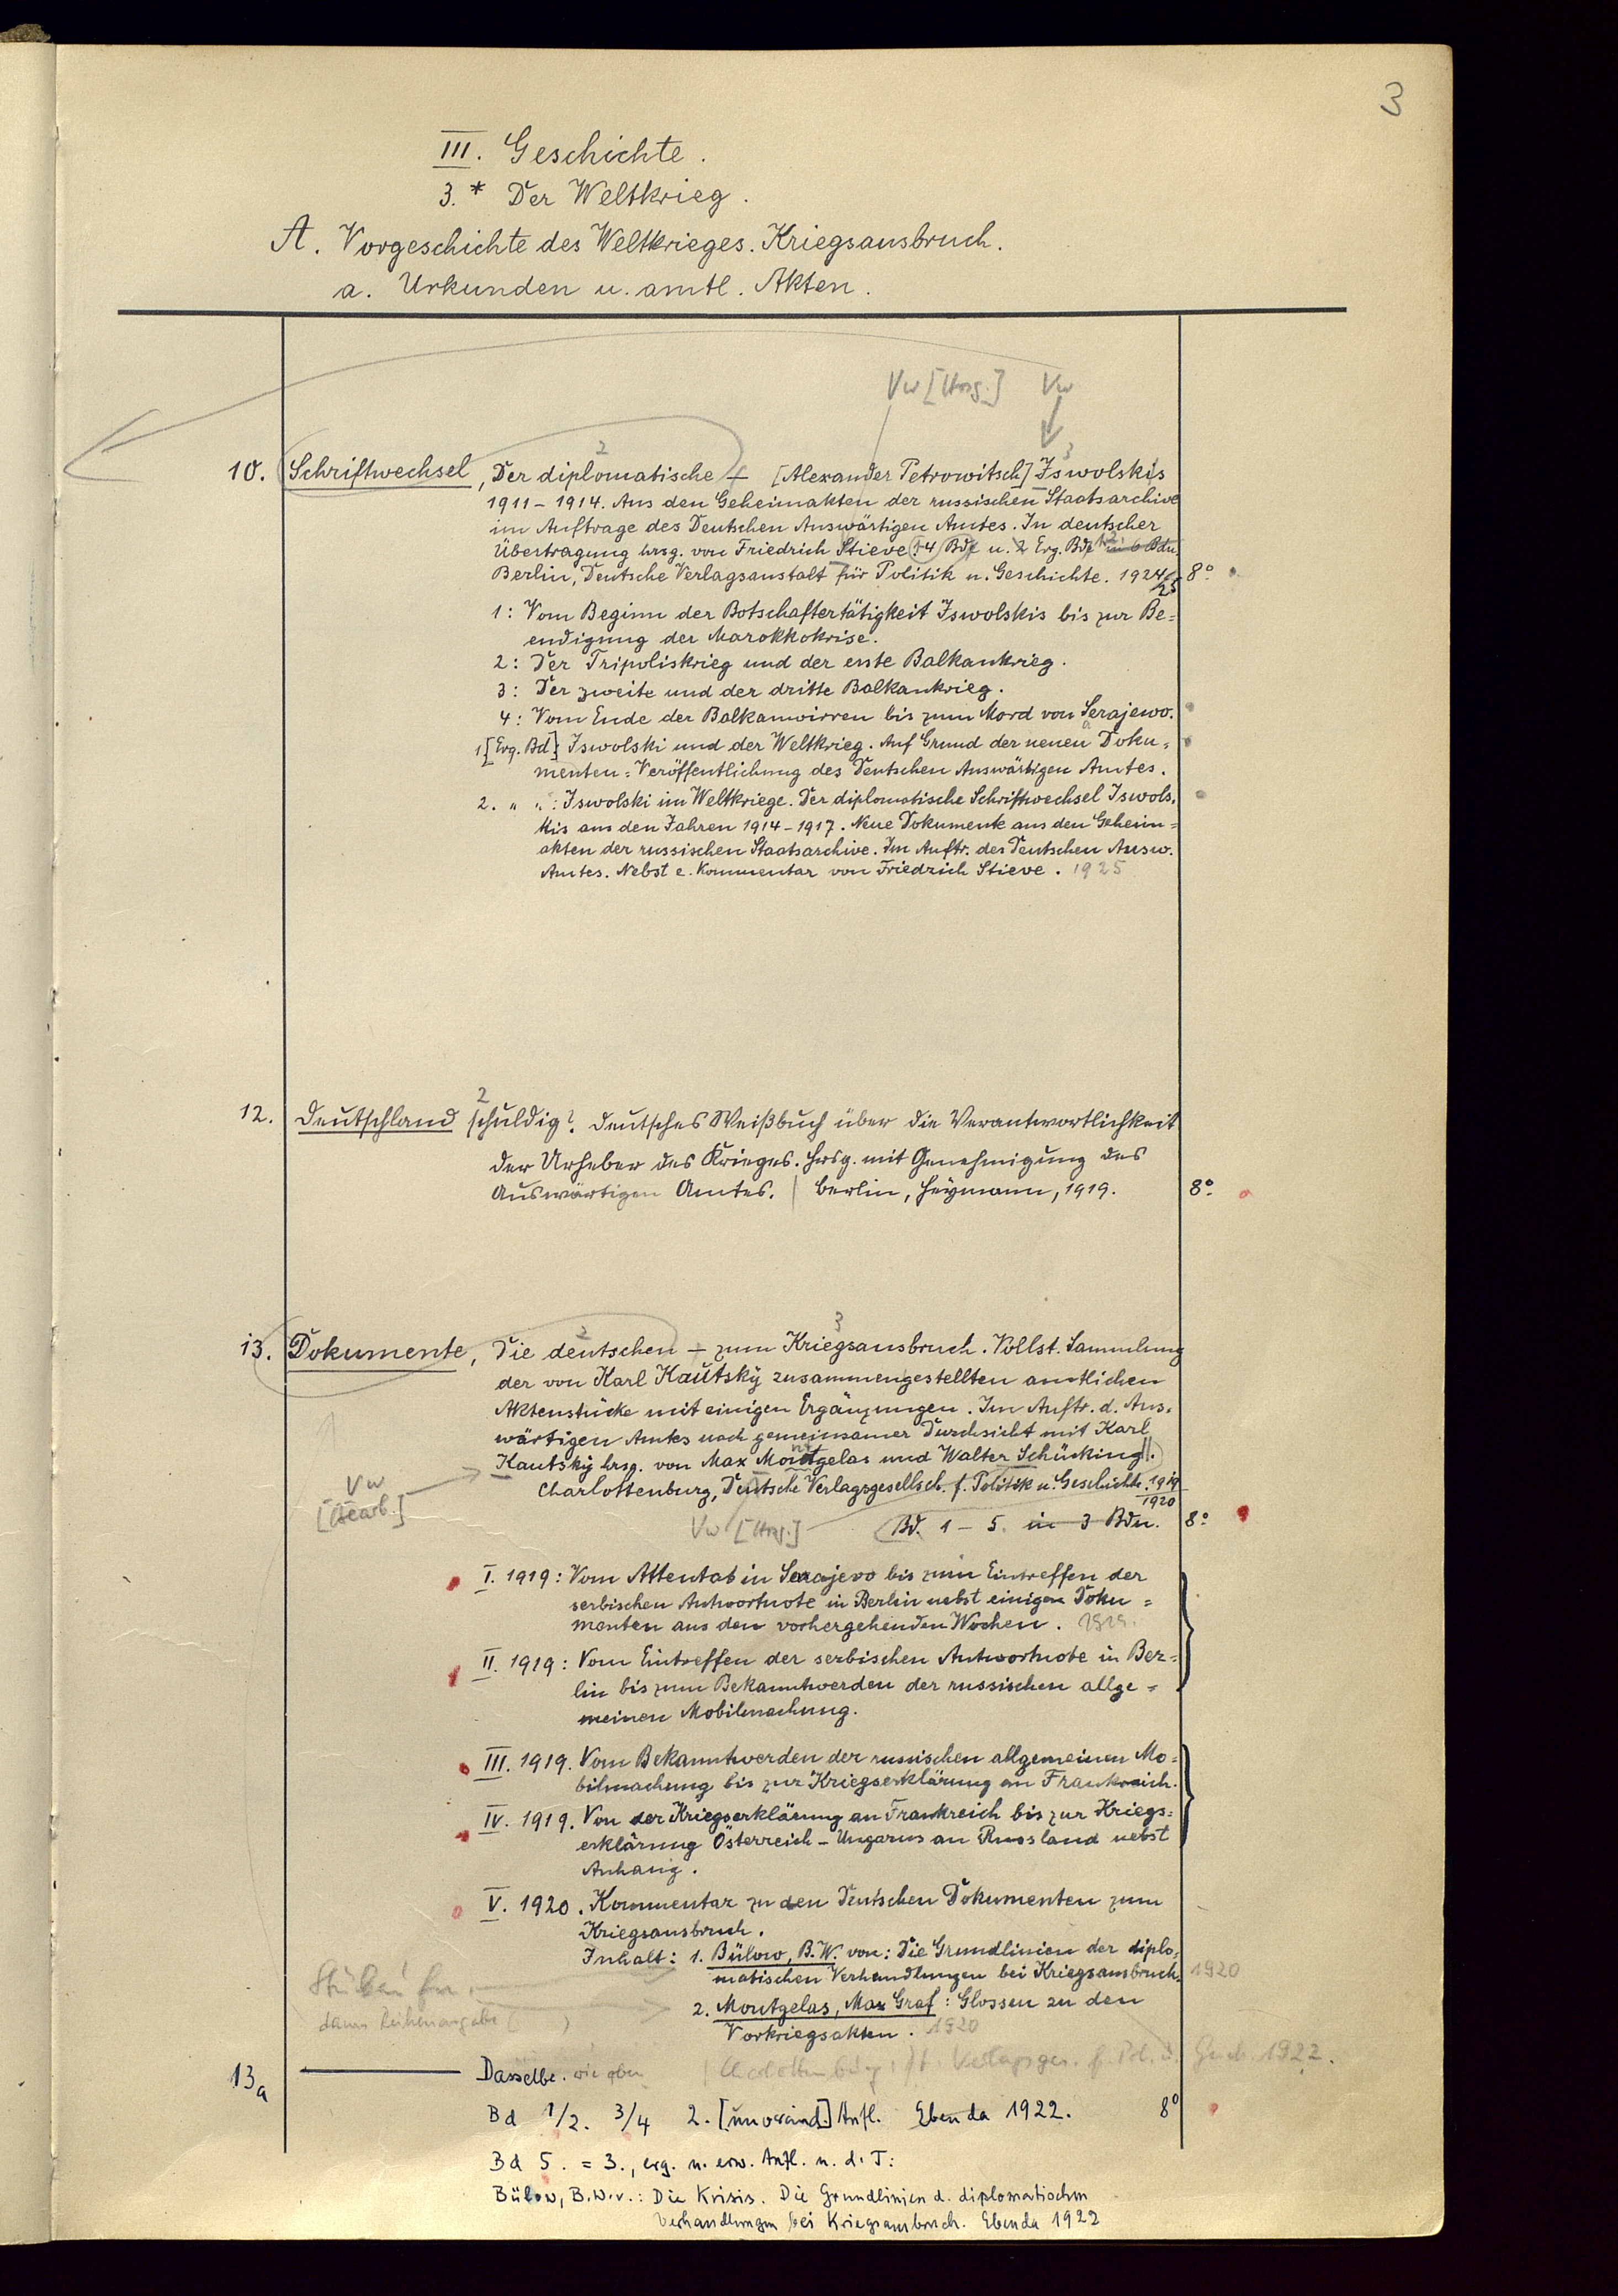 3
III. Geschichte.
3.* Der Weltkrieg.
A. Vorgeschichte des Weltkrieges. Kriegsausbruch.
a. Urkunden u. amtl. Akten.
Vw [Hrsg.] Vw
2 3
10. Schriftwechsel, Der diplomatische – [Alexander Petrowitsch] Iswolskis
1911–1914. Aus den Geheimakten der russischen Staatsarchive
im Auftrage des Deutschen Auswärtigen Amtes. In deutscher
Übertragung hrsg. von Friedrich Stieve. 1-4 Bde u. 2 Erg. Bde in 6 Bdn.
Berlin, Deutsche Verlagsanstalt für Politik u. Geschichte. 1924/25 8°
1: Vom Beginn der Botschaftertätigkeit Iswolskis bis zur Be=
endigung der Marokkokrise.
2: Der Tripoliskrieg und der erste Balkankrieg.
3: Der zweite und der dritte Balkankrieg.
4: Vom Ende der Balkanwirren bis zum Mord von Serajewo.
1 [Erg. Bd] Iswolski und der Weltkrieg. Auf Grund der neuen Doku=
menten=Veröffentlichung des Deutschen Auswärtigen Amtes.
2. " ": Iswolski im Weltkriege. Der diplomatische Schriftwechsel Iswols=
kis aus den Jahren 1914–1917. Neue Dokumente aus den Geheim=
akten der russischen Staatsarchive. Im Auftr. des Deutschen Ausw.
Amtes. Nebst e. Kommentar von Friedrich Stieve. 1925
2
12. Deutschland schuldig? Deutsches Weißbuch über die Verantwortlichkeit
der Urheber des Krieges. Hrsg. mit Genehmigung des
Auswärtigen Amtes. | Berlin, Heymann, 1919. 8°
2 3
13. Dokumente, Die deutschen – zum Kriegsausbruch. Vollst. Sammlung
der von Karl Kautsky zusammengestellten amtlichen
Aktenstücke mit einigen Ergänzungen. Im Auftr. d. Aus=
wärtigen Amtes nach gemeinsamer Durchsicht mit Karl
Kautsky hrsg. von Max Montgelas und Walter Schücking.
Charlottenburg, Deutsche Verlagsgesellsch. f. Politik u. Geschichte. 1919
1920
Vw
[Bearb.]
Vw [Hrsg.] Bd. 1–5. in 3 Bdn. 8°
I. 1919: Vom Attentat in Serajevo bis zum Eintreffen der
serbischen Antwortnote in Berlin nebst einigen Doku=
menten aus den vorhergehenden Wochen. 1919.
II. 1919: Vom Eintreffen der serbischen Antwortnote in Ber=
lin bis zum Bekanntwerden der russischen allge=
meinen Mobilmachung.
III. 1919. Vom Bekanntwerden der russischen allgemeinen Mo=
bilmachung bis zur Kriegserklärung an Frankreich.
IV. 1919. Von der Kriegserklärung an Frankreich bis zur Kriegs=
erklärung Österreich-Ungarns an Russland nebst
Anhang.
V. 1920. Kommentar zu den Deutschen Dokumenten zum
Kriegsausbruch.
Inhalt: 1. Bülow, B.W. von: Die Grundlinien der diplo=
matischen Verhandlungen bei Kriegsausbruch. 1920
2. Montgelas, Max Graf: Glossen zu den
Vorkriegsakten. 1920
dann Reihenangabe ( )
13a ——— Dasselbe. wie oben | Charlottenburg: Dt. Verlagsges. f. Pol. u. Gesch. 1922.
Bd 1/2. 3/4 2. [unveränd.] Aufl. Ebenda 1922. 8°
Bd 5. = 3., erg. u. erw. Aufl. u. d. T:
Bülow, B.W.v.: Die Krisis. Die Grundlinien d. diplomatischen
Verhandlungen bei Kriegsausbruch. Ebenda 1922